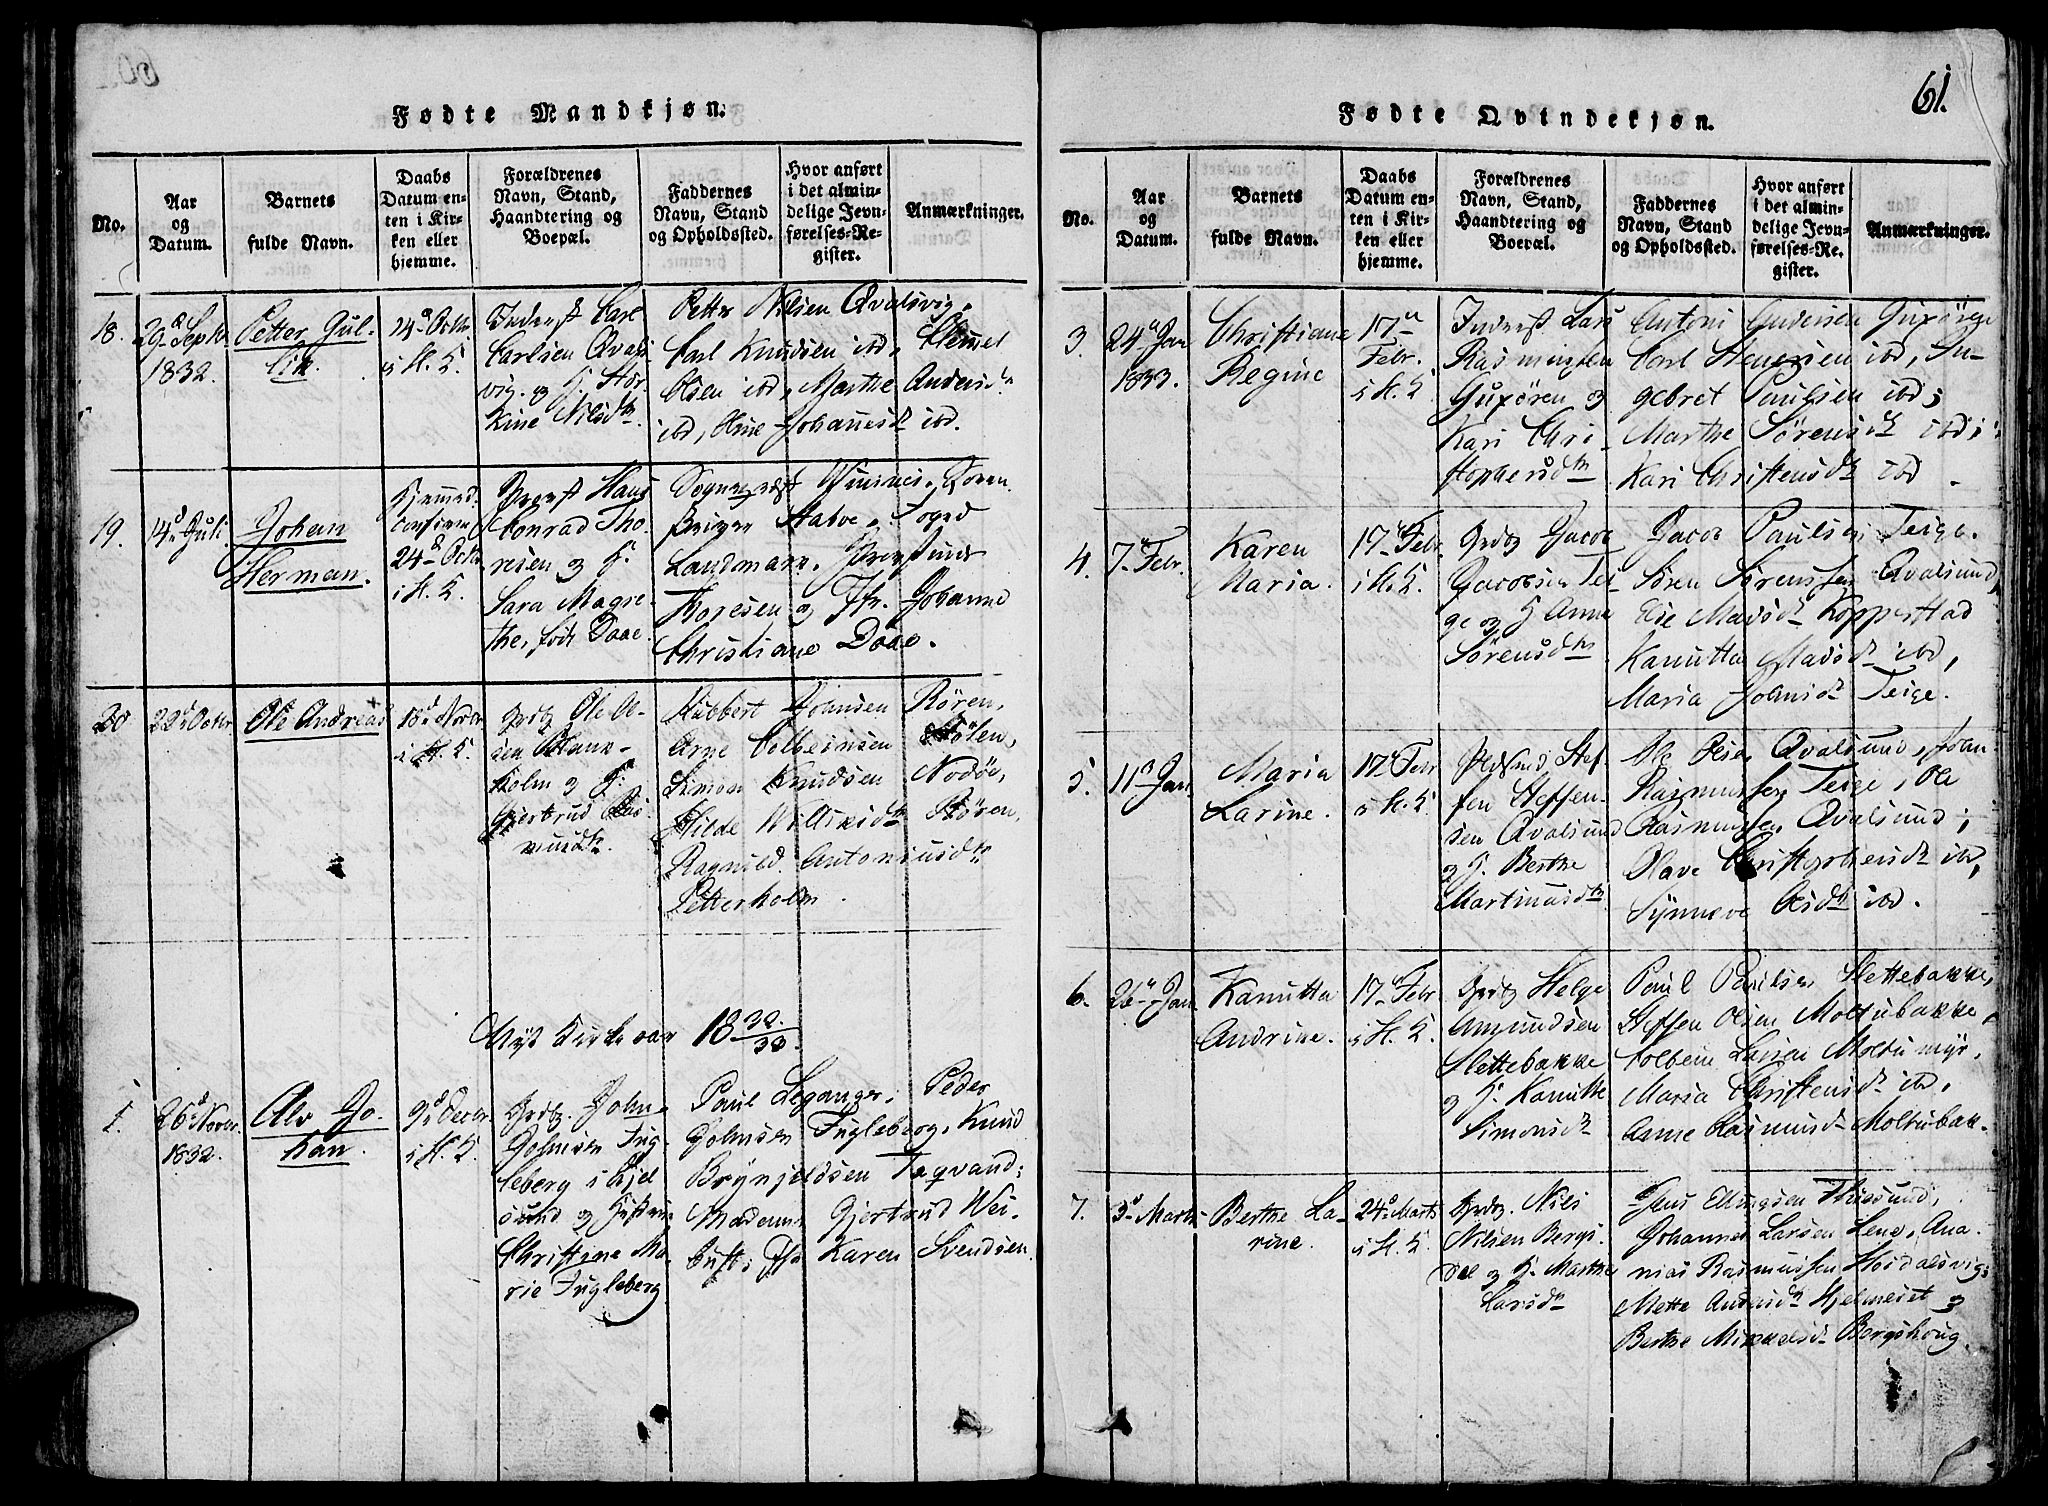 Fødte Mandkjøn.
No.
Aar
og
Datum.
Barnets
fulde Navn.
Daabs
Datum en-
ten i Kir-
ken eller
hjemme.
Forældrenes
Navn, Stand,
Haandtering og
Boepæl.
Faddernes
Navn, Stand
og Opholdssted.
Hvor anført
i det almin-
delige Jevn-
førelses-Re-
gister.
Anmærkninger.
18.
29d Septbr
1832.
Petter Gul-
lik.
14d Octbr
i H. K.
Inderst Carl
Carlsen Qvals
vig. og H. Stor-
Kine Nilsdtr
Petter Nilsen Qvalsvig,
Carl Knudsen ibd, Klemmet
Olsen ibd, Marthe Andersdr
ibd, Oline Johannesdr ibd.
19.
14d Juli
Johan
Herman.
Hjemmed.
confirm
24d Octbr
i H. K.
Hans
Conrad Tho-
resen og H.
Sara Magre-
the, født Daae.
Sognepræst
Landmark,
Thoresen og Jfr. Johanne
Christiane Daae.
20
22d Octbr
Ole Andreas
18d Novbr
i H. K.
Grdbr Ole Ol-
sen
holm og H.
Gjertrud Ras-
musdtr.
Rubbert Johnsen Røren,
Arne Colbeinsen
Simon Knudsen Nodøe,
Hilde Willasdtr Røren,
Ragnild Antoniusdtr
Petterholm.
Nyt Kirkeaar 1832/33.
1.
26d Novbr.
1832.
Alv Jo-
han.
9d Decbr
i H. K.
Grdbr. John
Johnsen Fug-
leberg i
sund og Hustrue
Christine Ma-
rie Fugleberg
Paul Leganger, Peder
Johnsen Fugleberg, Knud
Brynjeldsen Tæqvand;
Madamme Gjertrud Wei-
bust; Jfr Karen Svendsen
61.
Fødte Qvindekjøn.
No.
Aar
og
Datum.
Barnets
fulde Navn.
Daabs
Datum en-
ten i Kir-
ken eller
hjemme.
Forældrenes
Navn, Stand,
Haandtering og
Boepæl.
Faddernes
Navn, Stand
og Opholdssted.
Hvor anført
i det almin-
delige Jevn-
førelses-Re-
gister.
Anmærkninger.
3.
24d Jan
1833.
Christiane
Regine
17d
Febr.
i H. K.
Inderst Lars
Rasmussen
Gurøren og
Kari Chri-
stophersdtr
Antoni Gudersen Gurøren
Carl Stenersen ibd, In-
gebret Paulsen ibd;
Marthe Sørensdtr ibd;
Kari Christensdtr ibd.
4.
7d Febr.
Karen
Maria.
17d Febr.
i H. K.
Grdbr Jacob
Jacobsen Tei-
ge og H Anne
Sørensdtr
Jacob Paulsen Teige.
Søren Sørensen Qvalsund,
Else Madsdr Kopperstad
Kanutta Madsdr ibd,
Maria Johnsdr Teige.
5.
11d Jan
Maria
Larine.
17d Febr
i H. K.
Stef-
fen Steffen-
sen Qvalsund
og H. Berthe
Martinusdtr
Ole Olsen Qvalsund, Joan
Rasmussen Teige, Ole
Rasmussen Qvalsund;
Olave Christophersdr ibd,
Synneve Olsdtr ibd.
6.
26d Jan
Kanutta
Andrine.
17d Febr
i H. K.
Grdbr Helge
Amundsen
Slettebakke
og H. Kanutte
Simonsdr
Paul Paulsen Slettebakke,
Steffen Olsen Moltubakke,
Colbein Larsen Moltu myr,
Maria Christensdr ibd,
Anne Rasmusdr Moltubak.
7.
3d Marts
Berthe La-
rine.
24d Marts
i H. K.
Grdbr. Nils
Nilsen Bergs-
dal og H. Marthe
Larsdtr
Jens Ellingsen Thiesund,
Johannes Larsen Lene, Ana-
nias Rasmussen Hosdalsvig;
Mette Andersdr Hjelmeset og
Berthe Mikkelsdr Bergshoug.